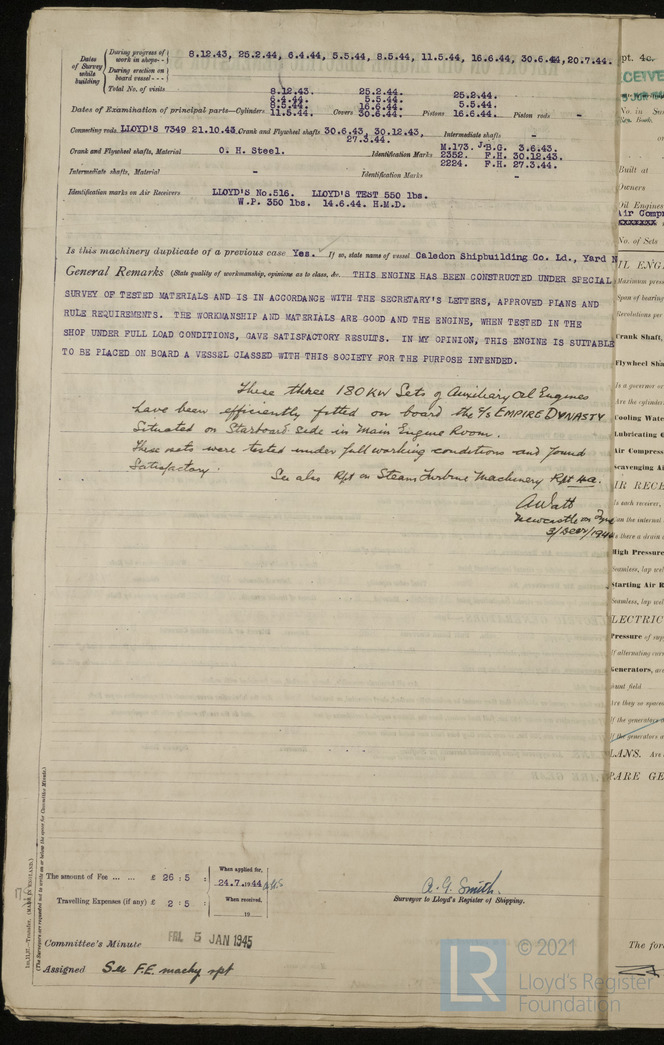 Dates of Survey while building
During progress of work in shops - - 8.12.43, 25.2.44, 6.4.44, 5.5.44, 8.5.44, 11.5.44, 16.6.44, 30.6.44, 20.7.44.
During erection on board vessel - - -
Total No. of visits
8.12.43. 25.2.44. 25.2.44.
6.4.44 5.5.44. 5.5.44.
8.5.44 16.6.44
Dates of Examination of principal parts—Cylinders 11.5.44. Covers 30.6.44 Pistons 16.6.44. Piston rods -
Connecting rods LLOYD'S 7349 21.10.43. Crank and Flywheel shafts 30.6.43, 30.12.43, Intermediate shafts -
27.3.44.
M.173. J.B.G. 3.6.43.
Crank and Flywheel shafts, Material O. H. Steel. Identification Marks 2352. F.H. 30.12.43.
2224. F.H. 27.3.44.
Intermediate shafts, Material - Identification Marks -
Identification marks on Air Receivers LLOYD'S No.516. LLOYD'S TEST 550 lbs.
W.P. 350 lbs. 14.6.44. H.M.D.
Is this machinery duplicate of a previous case Yes. If so, state name of vessel Caledon Shipbuilding Co. Ld., Yard N
General Remarks (State quality of workmanship, opinions as to class, &c. THIS ENGINE HAS BEEN CONSTRUCTED UNDER SPECIAL
SURVEY OF TESTED MATERIALS AND IS IN ACCORDANCE WITH THE SECRETARY'S LETTERS, APPROVED PLANS AND
RULE REQUIREMENTS. THE WORKMANSHIP AND MATERIALS ARE GOOD AND THE ENGINE, WHEN TESTED IN THE
SHOP UNDER FULL LOAD CONDITIONS, GAVE SATISFACTORY RESULTS. IN MY OPINION, THIS ENGINE IS SUITABLE
TO BE PLACED ON BOARD A VESSEL CLASSED WITH THIS SOCIETY FOR THE PURPOSE INTENDED.
These three 180 KW Sets of Auxiliary Oil Engines
have been efficiently fitted on board the S/S EMPIRE DYNASTY
Situated on Starboard side in Main Engine Room.
These sets were tested under full working conditions and found
Satisfactory. See also Rpt on Steam Turbine Machinery Rpt 4a.
A Watt
Newcastle on Tyne
The amount of Fee ... ... £ 26 : 5 : When applied for, 24.7.1944
Travelling Expenses (if any) £ 2 : 5 : When received, 19
A. G. Smith.
Surveyor to Lloyd's Register of Shipping.
Committee's Minute FRI. 5 JAN 1945
Assigned See F.E. machy rpt
(MADE IN ENGLAND.)
(The Surveyors are requested not to write on or below the space for Committee Minute.)
pt. 4c.
CEIVE
Built at
Owners
Oil Engines
Air Compr
XXXXXXX
No. of Sets
IL ENG
Maximum press
Span of bearing
Revolutions per
Crank Shaft,
Flywheel Sha
Is a governor or
Are the cylinder
Cooling Wate
Lubricating O
Air Compress
Scavenging Ai
IR RECE
Is each receiver,
Can the internal
Is there a drain
High Pressure
Seamless, lap wel
Starting Air R
Seamless, lap wel
LECTRIC
Pressure of sup
If alternating curr
Generators,
hunt field
Are they so spaced
If the generators a
If the generators a
LANS. Are
PARE GE
The for
© 2021
LR
Lloyd's Register
Foundation